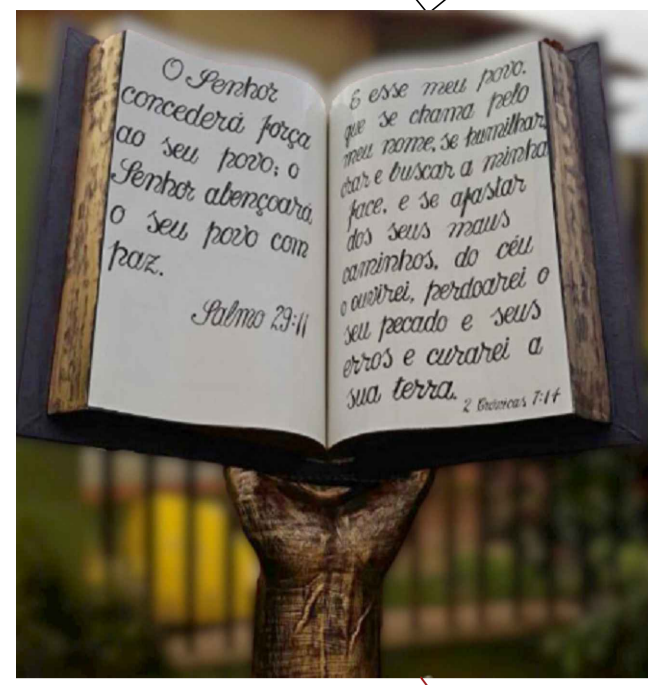 O Senhor
concederá força
ao seu povo; o
Senhor abençoará
o seu povo com
paz.
Salmo 29:11
E esse meu povo.
que se chama pelo
meu nome, se humilhar,
orar e buscar a minha
face, e se afastar
dos seus maus
caminhos, do céu
o ouvirei, perdoarei o
seu pecado e seus
erros e curarei a
sua terra.
2 Crônicas 7:14